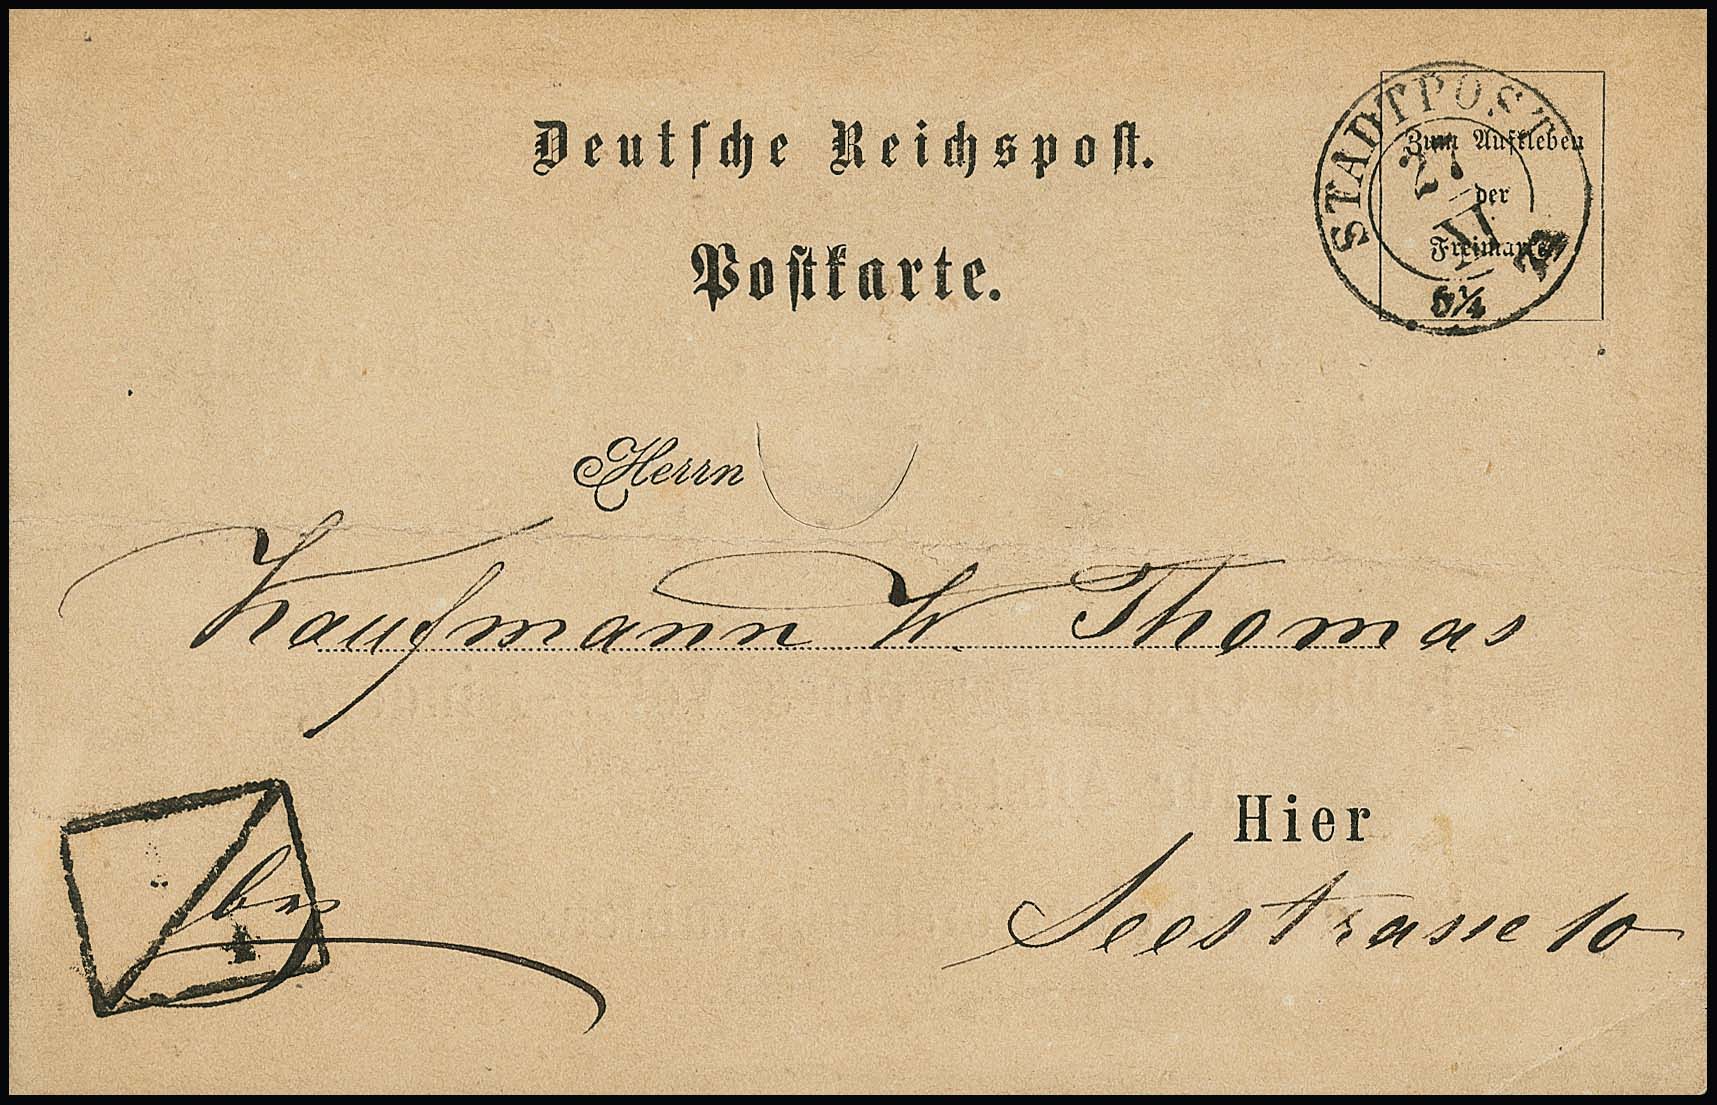 Deutsche Reichspost.
Postkarte.
STADTPOST
27
II
6¼
Zum Aufkleben
der
Freimarke
Herrn
Kaufmann W Thomas
Hier
Seestrasse 10